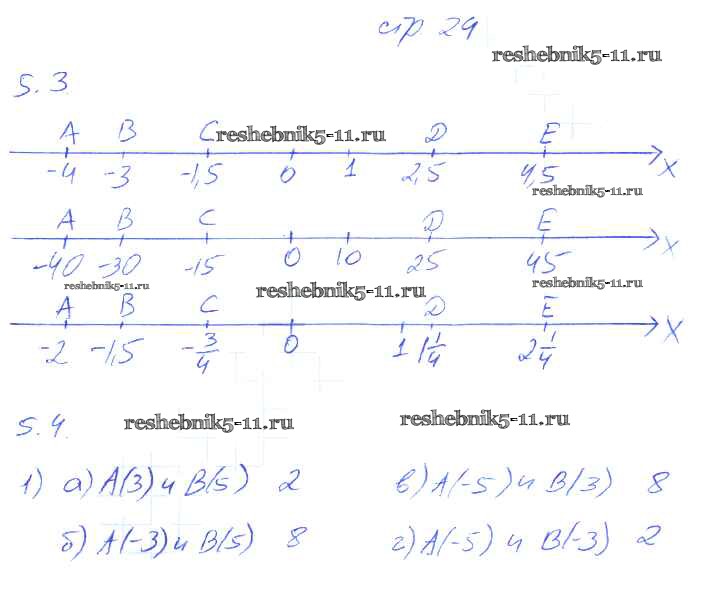 стр 24
reshebnik5-11.ru
5.3
A B C reshebnik5-11.ru D E
-4 -3 -1,5 0 1 2,5 4,5 x
reshebnik5-11.ru
A B C D E
-40 -30 -15 0 10 25 45 x
reshebnik5-11.ru reshebnik5-11.ru reshebnik5-11.ru
A B C D E
-2 -1,5 -3/4 0 1 1 1/4 2 1/4 x
5.4 reshebnik5-11.ru reshebnik5-11.ru
1) а) A(3) и B(5) 2 в) A(-5) и B(3) 8
б) A(-3) и B(5) 8 г) A(-5) и B(-3) 2